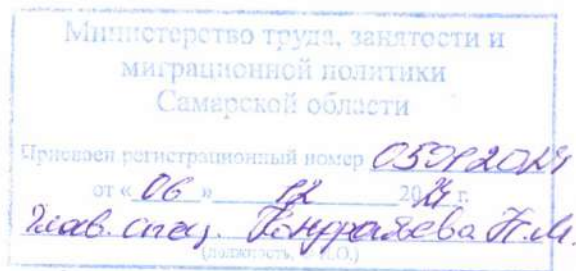 Министерство труда, занятости и
миграционной политики
Самарской области
Присвоен регистрационный номер
от « 06 » 12 2024 г.
Глав. спец.
(должность, Ф.И.О.)